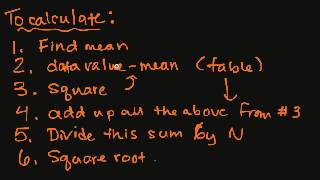 To calculate:
1. Find mean
2. data value - mean (table)
3. Square
4. add up all the above from #3
5. Divide this sum by N
6. Square root.